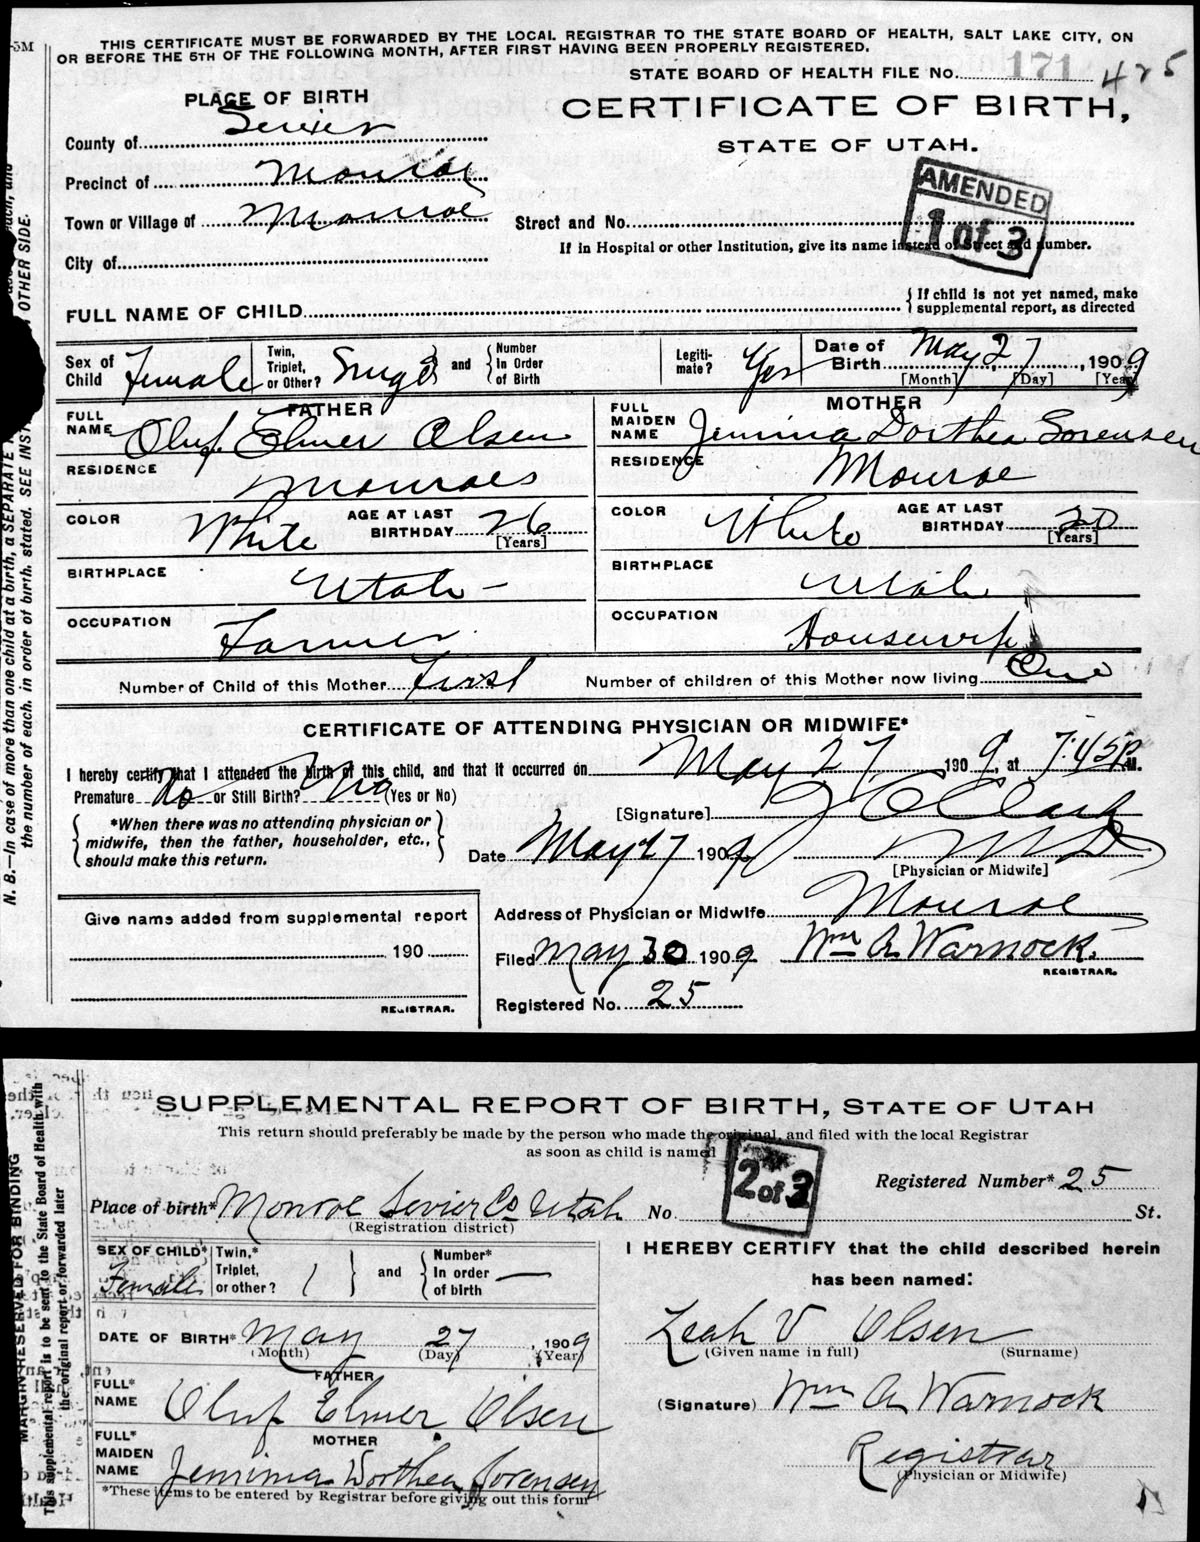 THIS CERTIFICATE MUST BE FORWARDED BY THE LOCAL REGISTRAR TO THE STATE BOARD OF HEALTH, SALT LAKE CITY, ON
OR BEFORE THE 5TH OF THE FOLLOWING MONTH, AFTER FIRST HAVING BEEN PROPERLY REGISTERED.
STATE BOARD OF HEALTH FILE No. 171 425
PLACE OF BIRTH
CERTIFICATE OF BIRTH,
STATE OF UTAH.
County of Sevier
Precinct of Monroe
AMENDED
1 of 3
Town or Village of Monroe
Street and No.
If in Hospital or other Institution, give its name instead of Street and number.
City of
FULL NAME OF CHILD
If child is not yet named, make
supplemental report, as directed
Sex of Child Female
Twin, Triplet, or Other? Single and Number In Order of Birth
Legitimate? Yes
Date of Birth May 27, 1909
[Month] [Day] [Year]
FATHER
FULL NAME Oluf Elmer Olsen
MOTHER
FULL MAIDEN NAME Jemima Dorthea Sorensen
RESIDENCE Monroe
RESIDENCE Monroe
COLOR White AGE AT LAST BIRTHDAY 26 [Years]
COLOR White AGE AT LAST BIRTHDAY 20 [Years]
BIRTHPLACE Utah
BIRTHPLACE Utah
OCCUPATION Farmer
OCCUPATION Housewife
Number of Child of this Mother First
Number of children of this Mother now living One
CERTIFICATE OF ATTENDING PHYSICIAN OR MIDWIFE*
I hereby certify that I attended the birth of this child, and that it occurred on May 27 1909, at 7:45 P M.
Premature No or Still Birth? No (Yes or No)
[Signature] J C Clark
*When there was no attending physician or
midwife, then the father, householder, etc.,
should make this return.
Date May 27 1909
M D
[Physician or Midwife]
Give name added from supplemental report
190
REGISTRAR.
Address of Physician or Midwife Monroe
Filed May 30 1909 Wm A Warnock.
REGISTRAR.
Registered No. 25
N. B.—In case of more than one child at a birth, a SEPARATE
the number of each, in order of birth, stated. SEE
OTHER SIDE.
SUPPLEMENTAL REPORT OF BIRTH, STATE OF UTAH
This return should preferably be made by the person who made the original, and filed with the local Registrar
as soon as child is named
2 of 3
Registered Number* 25
Place of birth* Monroe Sevier Co Utah No. St.
(Registration district)
SEX OF CHILD* Female
Twin,* Triplet, or other? 1 and Number* In order of birth —
I HEREBY CERTIFY that the child described herein
has been named:
DATE OF BIRTH* May 27, 1909
(Month) (Day) (Year)
Leah V Olsen
(Given name in full) (Surname)
FATHER
FULL* NAME Oluf Elmer Olsen
(Signature) Wm A Warnock
MOTHER
FULL* MAIDEN NAME Jemima Dorthea Sorensen
Registrar
(Physician or Midwife)
*These items to be entered by Registrar before giving out this form
MARGIN RESERVED FOR BINDING
This supplemental report is to be sent to the State Board of Health with
the original report or forwarded later